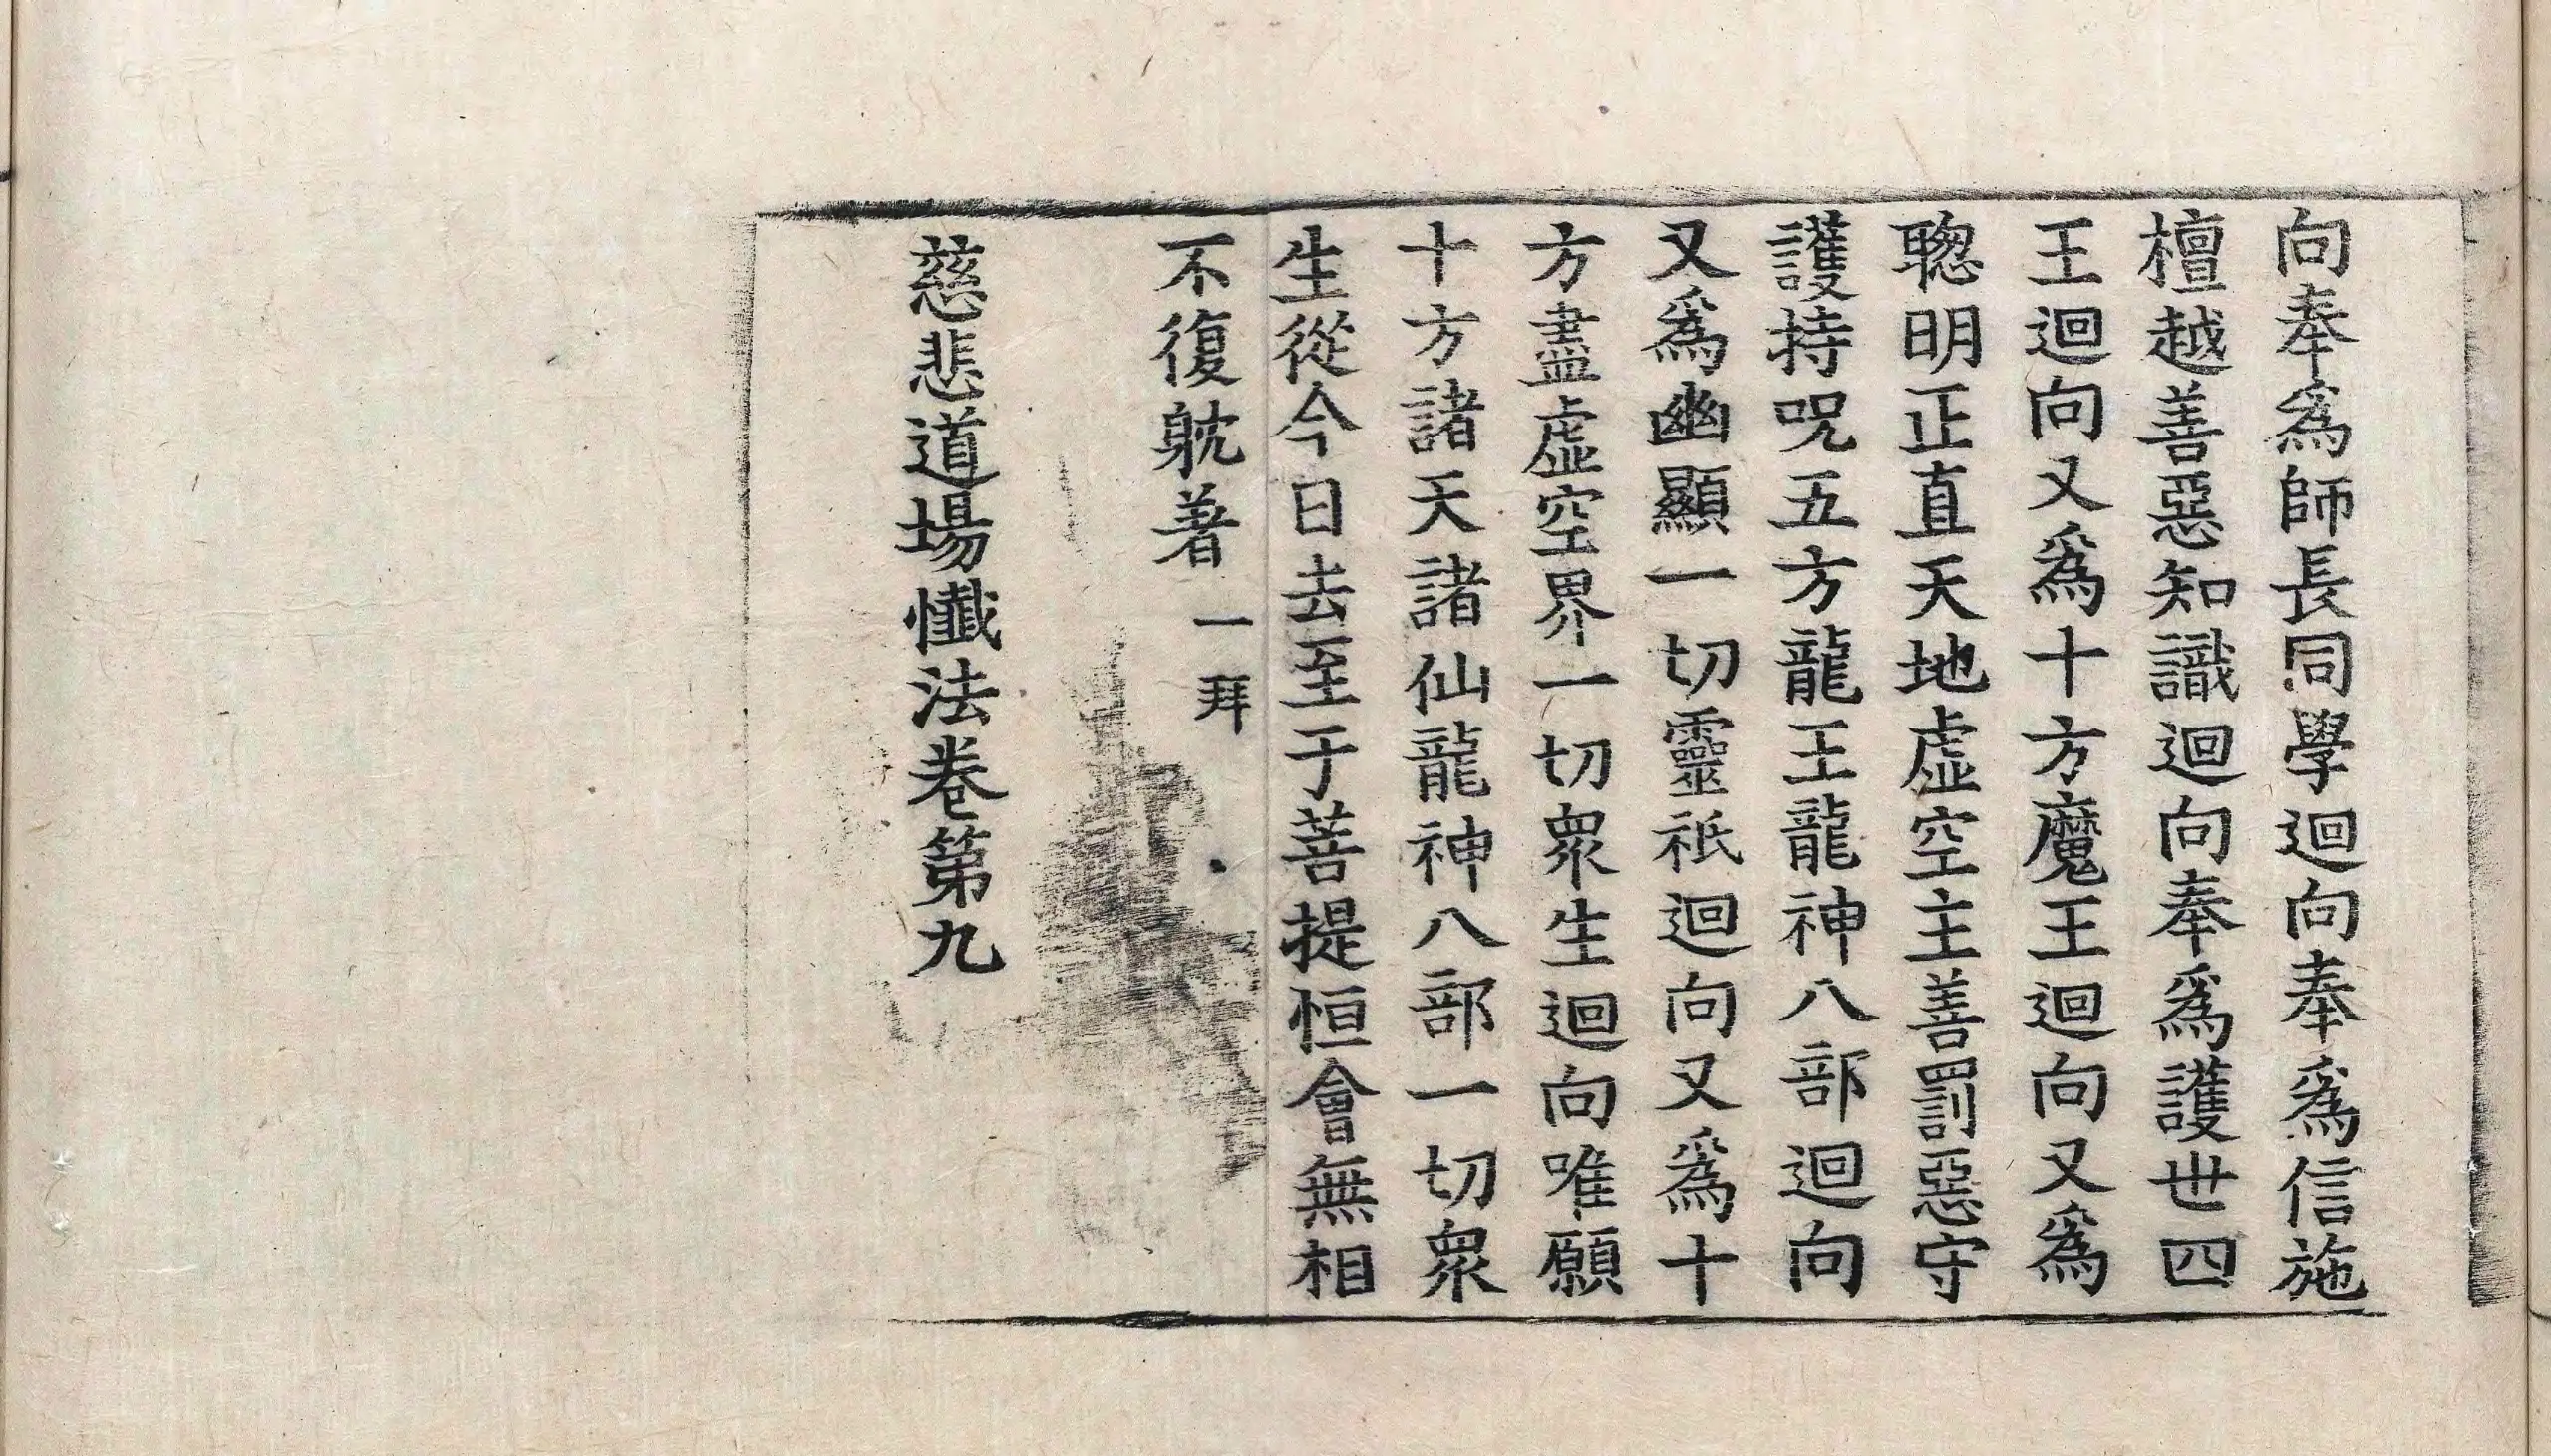 向奉爲師長同學迴向奉爲信施
檀越善惡知識迴向奉爲護世四
王迴向又爲十方魔王迴向又爲
聦明正直天地虛空主善罰惡守
護持呪五方龍王龍神八部迴向
又爲幽顯一切靈祇迴向又爲十
方盡虛空界一切衆生迴向唯願
十方諸天諸仙龍神八部一切衆
生從今日去至于菩提恒會無相
不復躭著 一拜
慈悲道場懺法卷第九